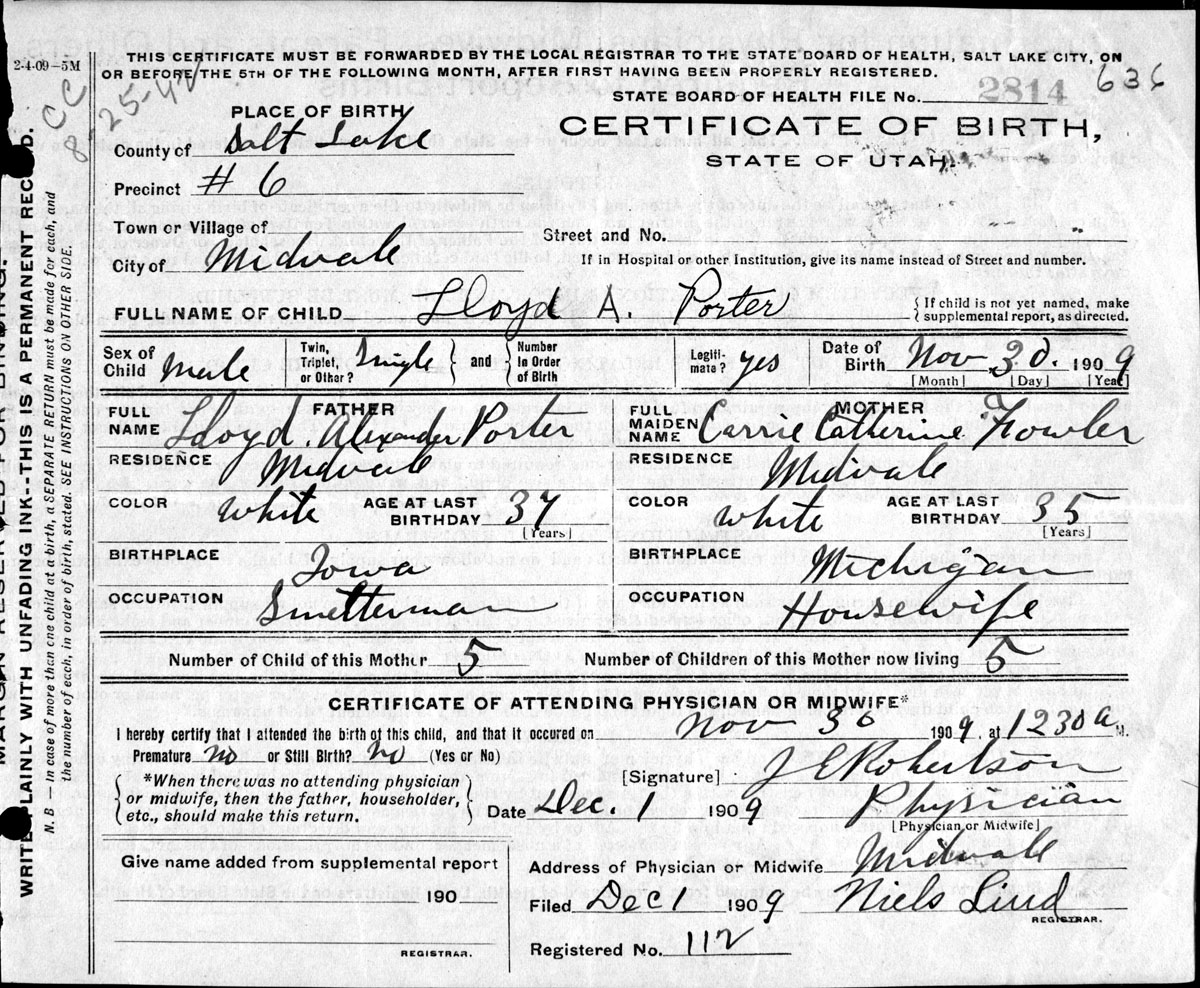 2-4-09-5M
THIS CERTIFICATE MUST BE FORWARDED BY THE LOCAL REGISTRAR TO THE STATE BOARD OF HEALTH, SALT LAKE CITY, ON
OR BEFORE THE 5TH OF THE FOLLOWING MONTH, AFTER FIRST HAVING BEEN PROPERLY REGISTERED.
636
CC
8-25-42
STATE BOARD OF HEALTH FILE No. 2814
PLACE OF BIRTH
CERTIFICATE OF BIRTH,
STATE OF UTAH
County of Salt Lake
Precinct #6
Town or Village of
Street and No.
City of Midvale
If in Hospital or other Institution, give its name instead of Street and number.
FULL NAME OF CHILD Lloyd A. Porter
{If child is not yet named, make
supplemental report, as directed.
Sex of Child Male
Twin, Triplet, or Other? Single } and { Number in Order of Birth
Legiti-mate? yes
Date of Birth Nov 30. 1909
[Month] [Day] [Year]
FATHER
FULL NAME Lloyd Alexander Porter
RESIDENCE Midvale
COLOR White AGE AT LAST BIRTHDAY 37
[Years]
BIRTHPLACE Iowa
OCCUPATION Smelterman
MOTHER
FULL MAIDEN NAME Carrie Catherine Fowler
RESIDENCE Midvale
COLOR White AGE AT LAST BIRTHDAY 35
[Years]
BIRTHPLACE Michigan
OCCUPATION Housewife
Number of Child of this Mother 5 Number of Children of this Mother now living 5
CERTIFICATE OF ATTENDING PHYSICIAN OR MIDWIFE*
I hereby certify that I attended the birth of this child, and that it occured on Nov 30 1909. at 1230 a M.
Premature no or Still Birth? no (Yes or No)
{*When there was no attending physician
or midwife, then the father, householder,
etc., should make this return.}
[Signature] J E Robertson
Date Dec. 1 1909 Physician
[Physician or Midwife]
Give name added from supplemental report
190
REGISTRAR.
Address of Physician or Midwife Midvale
Filed Dec 1 1909 Niels Lind
REGISTRAR.
Registered No. 112
WRITE PLAINLY WITH UNFADING INK--THIS IS A PERMANENT RECORD.
N. B — In case of more than one child at a birth, a SEPARATE RETURN must be made for each, and
the number of each, in order of birth, stated. SEE INSTRUCTIONS ON OTHER SIDE.